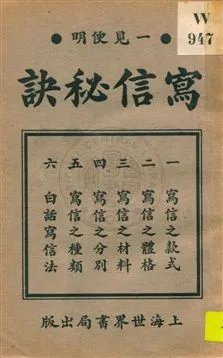 W
947
● 一見便明 ●
寫信秘訣
一 寫信之款式
二 寫信之體格
三 寫信之材料
四 寫信之分別
五 寫信之種類
六 白話寫信法
上海世界書局出版